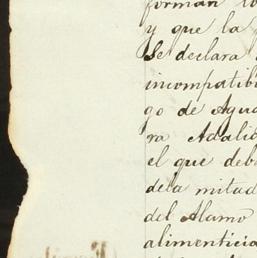 forman lo
y que la
Se declara
incompatib
go de Agua
ra Adalid
el que deb
dela mitad
del Alamo
alimenticia